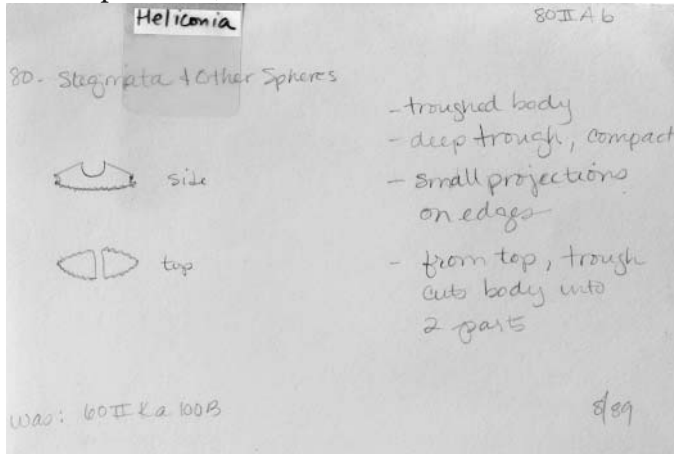 Heliconia
80 II A b
80 - Stegmata & Other Spheres
- troughed body
- deep trough, compact
side
- small projections
on edges
top
- from top, trough
cuts body into
2 parts
was: 60 II Ka 100B
8/89